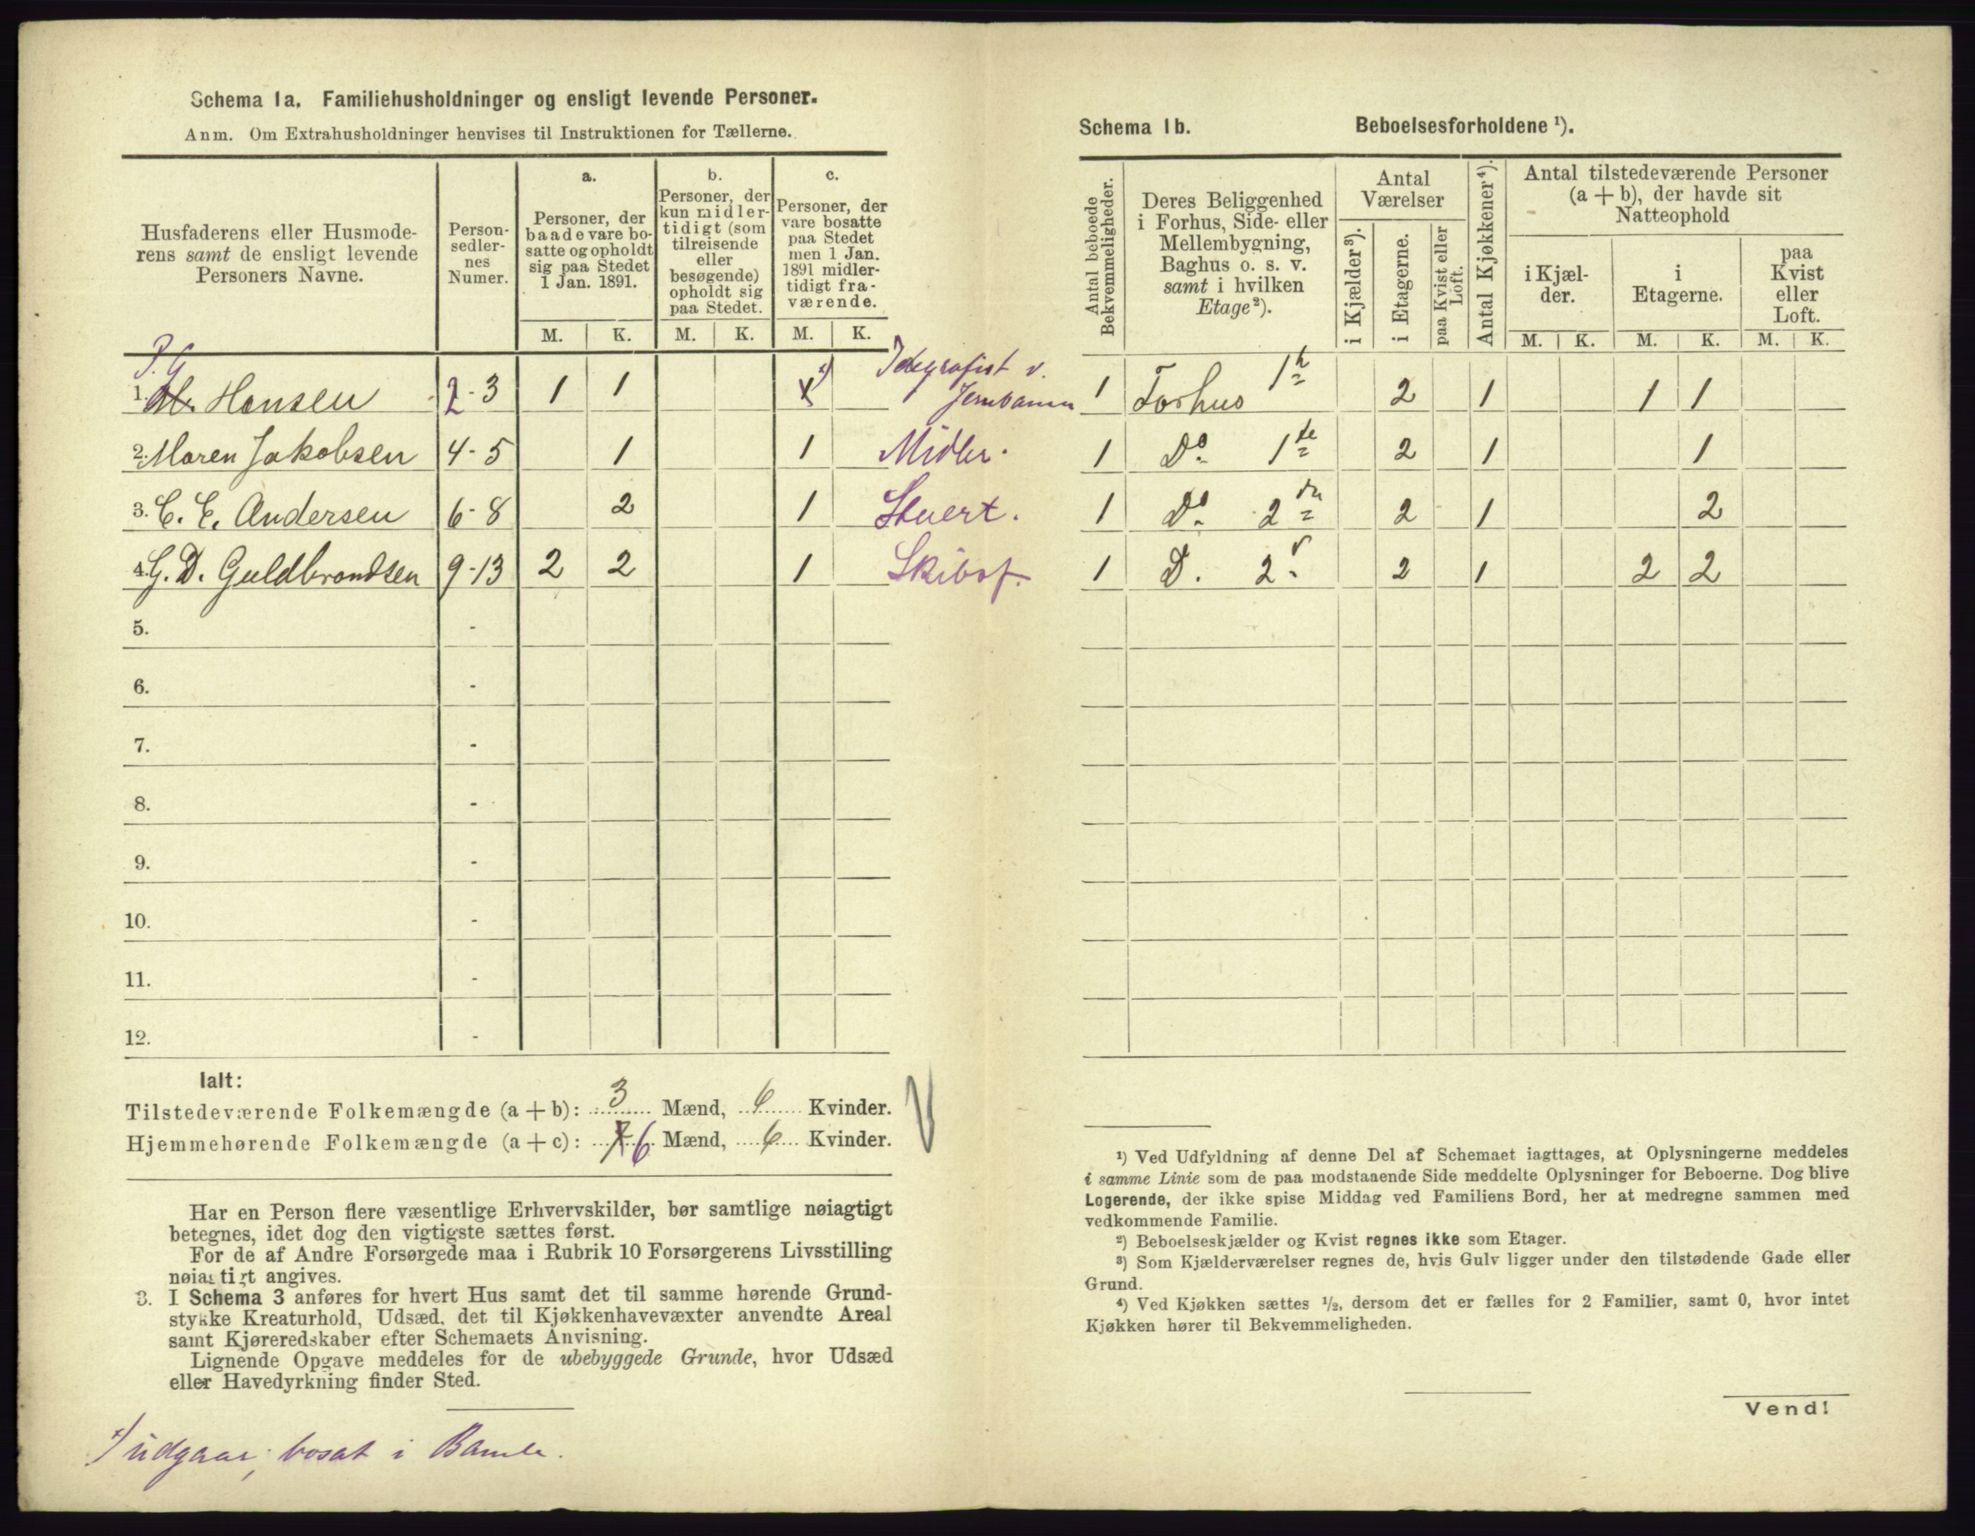 Schema 1a. Familiehusholdninger og ensligt levende Personer.
Anm. Om Extrahusholdninger henvises til Instruktionen for Tællerne.
Husfaderens eller Husmode-
rens samt de ensligt levende
Personers Navne.
Person-
sedler-
nes
Numer.
a.
Personer, der
baade vare bo-
satte og opholdt
sig paa Stedet
1 Jan. 1891.
b.
Personer, der
kun midler-
tidigt (som
tilreisende
eller
besøgende)
opholdt sig
paa Stedet.
c.
Personer, der
vare bosatte
paa Stedet
men 1 Jan.
1891 midler-
tidigt fra-
værende.
M. K. M. K. M. K.
P. G
1. Hansen 2-3 1 1 x) Telegrafist v.
Jernbanen
2. Maren Jakobsen 4-5 1 1 Midler.
3. C. E. Andersen 6-8 2 1 Stuert.
4. G. D. Guldbrandsen 9-13 2 2 1 Skibsf.
5. -
6. -
7. -
8. -
9. -
10. -
11. -
12. -
Ialt:
Tilstedeværende Folkemængde (a + b): 3 Mænd, 6 Kvinder.
Hjemmehørende Folkemængde (a + c): 6 Mænd, 6 Kvinder.
Har en Person flere væsentlige Erhvervskilder, bør samtlige nøiagtigt
betegnes, idet dog den vigtigste sættes først.
For de af Andre Forsørgede maa i Rubrik 10 Forsørgerens Livsstilling
nøiagtigt angives.
3. I Schema 3 anføres for hvert Hus samt det til samme hørende Grund-
stykke Kreaturhold, Udsæd, det til Kjøkkenhavevæxter anvendte Areal
samt Kjøreredskaber efter Schemaets Anvisning.
Lignende Opgave meddeles for de ubebyggede Grunde, hvor Udsæd
eller Havedyrkning finder Sted.
x) udgaar, bosat i Bamle.
Schema 1b. Beboelsesforholdene ¹).
Antal beboede
Bekvemmeligheder.
Deres Beliggenhed
i Forhus, Side- eller
Mellembygning,
Baghus o. s. v.
samt i hvilken
Etage²).
Antal
Værelser
i Kjælder³).
i Etagerne.
paa Kvist eller
Loft.
Antal Kjøkkener⁴).
Antal tilstedeværende Personer
(a + b), der havde sit
Natteophold
i Kjæl-
der.
i
Etagerne.
paa
Kvist
eller
Loft.
M. K. M. K. M. K.
1 Forhus 1 h 2 1 1 1
1 Do 1 te 2 1 1
1 Do 2 den 2 1 2
1 D. 2 v 2 1 2 2
¹) Ved Udfyldning af denne Del af Schemaet iagttages, at Oplysningerne meddeles
i samme Linie som de paa modstaaende Side meddelte Oplysninger for Beboerne. Dog blive
Logerende, der ikke spise Middag ved Familiens Bord, her at medregne sammen med
vedkommende Familie.
²) Beboelseskjælder og Kvist regnes ikke som Etager.
³) Som Kjælderværelser regnes de, hvis Gulv ligger under den tilstødende Gade eller
Grund.
⁴) Ved Kjøkken sættes ½, dersom det er fælles for 2 Familier, samt 0, hvor intet
Kjøkken hører til Bekvemmeligheden.
Vend!